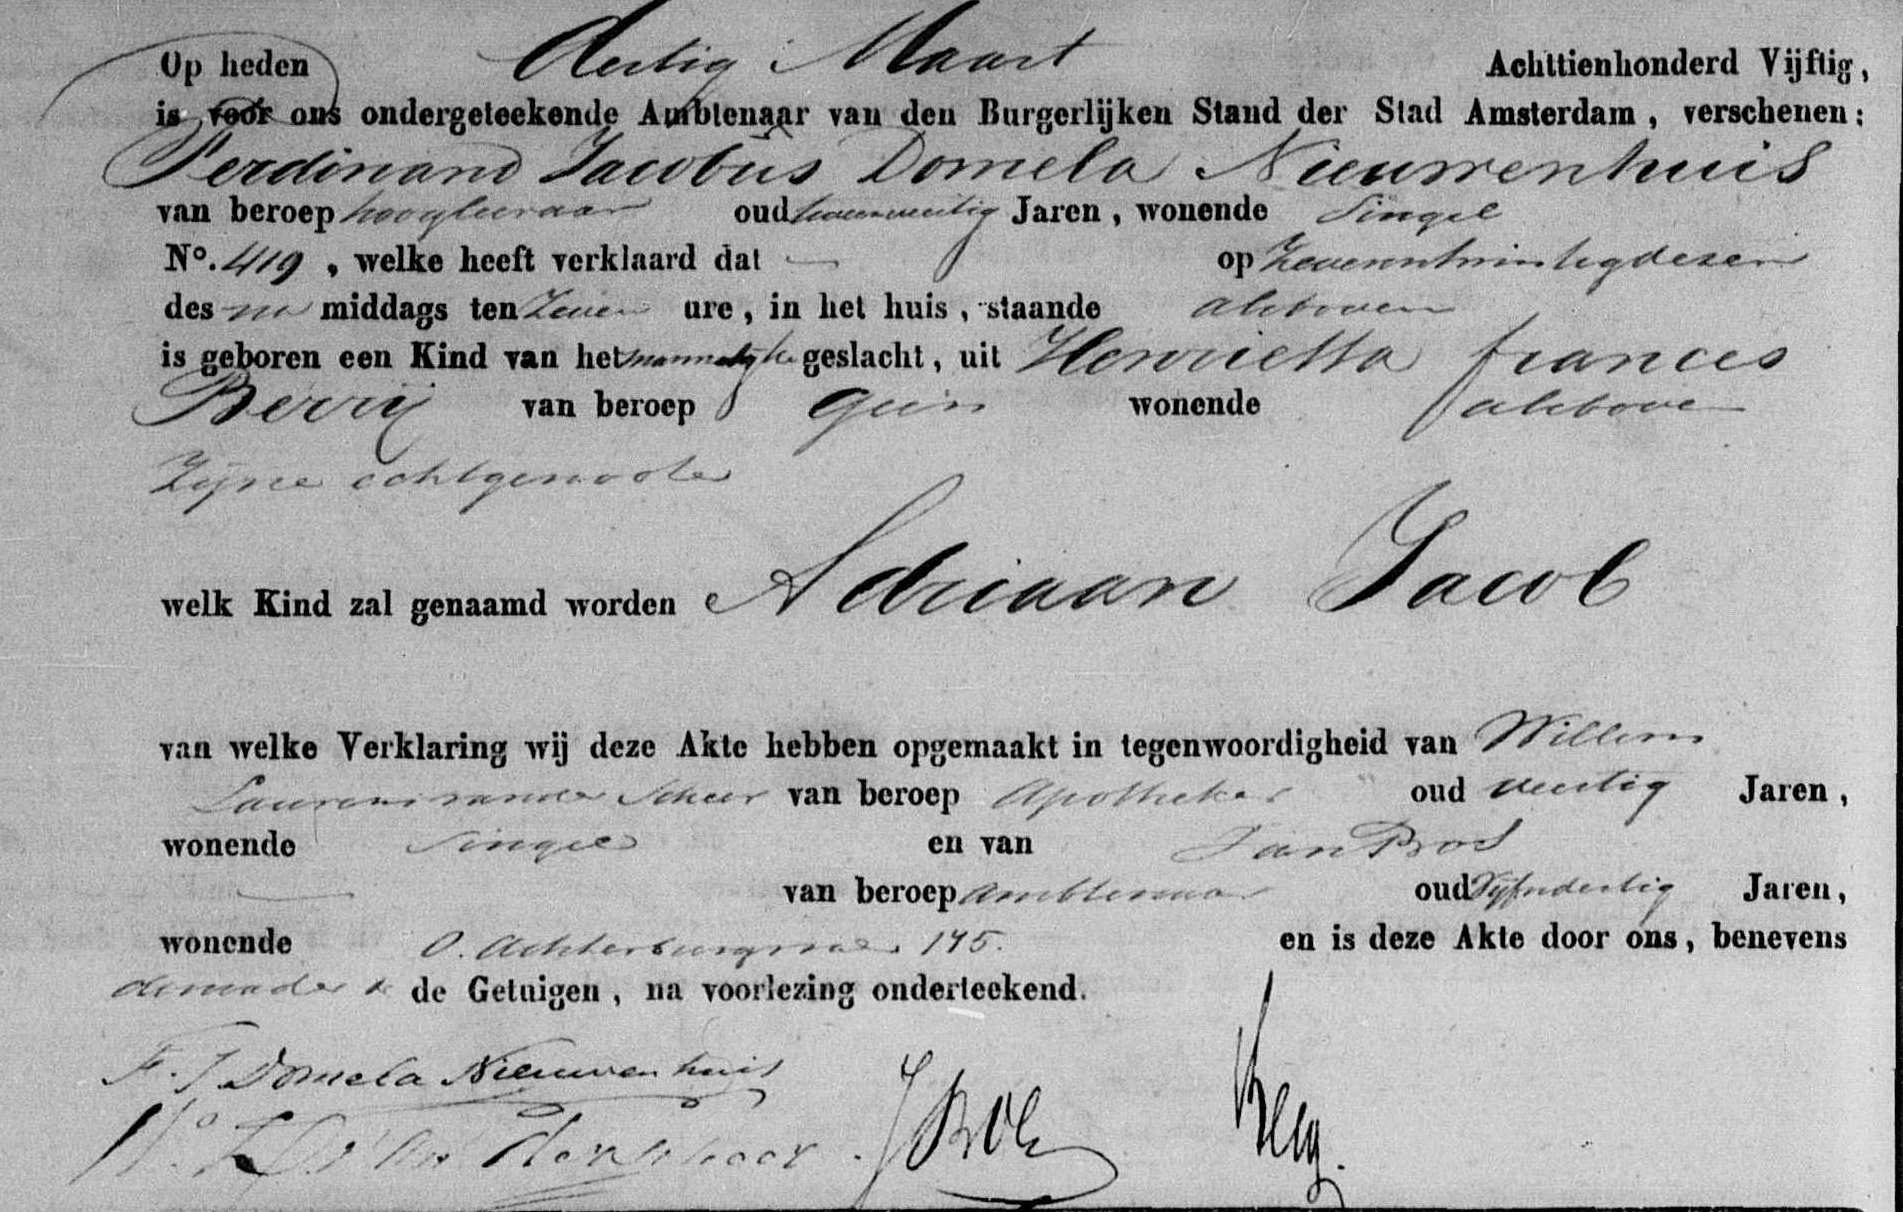 Op heden Dertig Maart Achttienhonderd Vijftig,
is voor ons ondergeteekende Ambtenaar van den Burgerlijken Stand der Stad Amsterdam, verschenen:
Ferdinand Jacobus Domela Nieuwenhuis
van beroep hoogleeraar oud Jaren, wonende Singel
No. 419, welke heeft verklaard dat — op Zevenentwintig dezer
des na middags ten Zeven ure, in het huis, staande alsboven
is geboren een Kind van het mannelijke geslacht, uit Henrietta Frances
Berrij van beroep geen wonende alsboven
Zijne echtgenoote
welk Kind zal genaamd worden Adriaan Jacob
van welke Verklaring wij deze Akte hebben opgemaakt in tegenwoordigheid van Willem
Laurens van der Scheer van beroep Apotheker oud veertig Jaren,
wonende Singel en van Jan Bos
— van beroep ambtenaar oud Vijfendertig Jaren,
wonende O. Achterburgwal 175. en is deze Akte door ons, benevens
de Getuigen, na voorlezing onderteekend.
F. J Domela Nieuwenhuis
van der Scheer J Bos